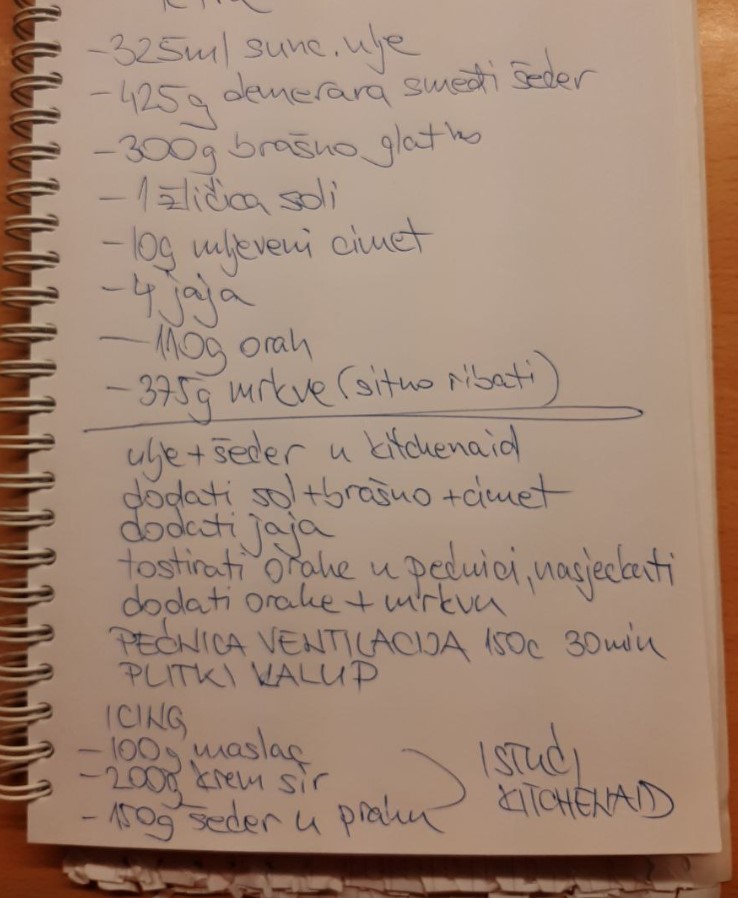 -325ml sunc. ulje
-425g demerara smeđi šećer
-300g brašno glatko
-1 žličica soli
-10g mljeveni cimet
-4 jaja
-110g orah
-375g mrkve (sitno ribati)
ulje + šećer u kitchenaid
dodati sol + brašno + cimet
dodati jaja
tostirati orahe u pećnici, nasjeckati
dodati orahe + mrkvu
PEĆNICA VENTILACIJA 150c 30min
PLITKI KALUP
ICING
-100g maslac
-200g krem sir
-150g šećer u prahu
KITCHENAID